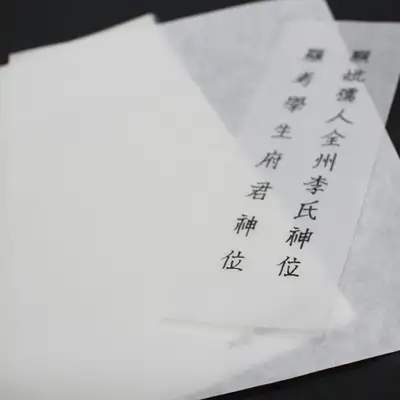 顯妣孺人全州李氏神位
顯考學生府君神位